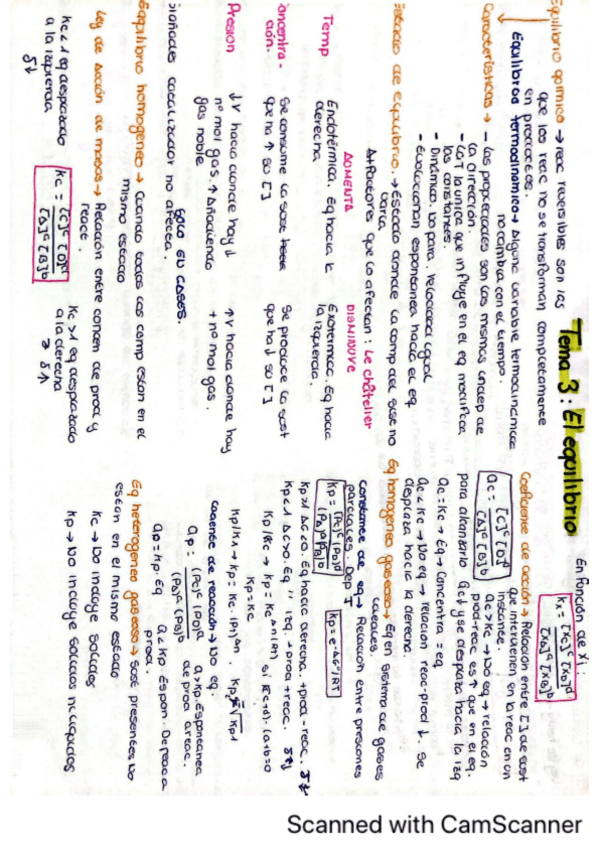 Tema 3: El equilibrio
Equilibrio químico → reac reversibles son las
que los reac no se transforman completamente
en productos.
Equilibrio termodinámico → Alguna variable termodinámica
no cambia con el tiempo.
Características → - las propiedades son las mismas indep de
la dirección.
- La T la única que influye en el eq modifica
las constantes.
- Dinámica. No para. Velocidad igual
- Evolucionan espontánea hacia el eq
Estado de equilibrio. → Estado donde la comp del sist no
varía
Factores que lo afectan: Le châtelier
AUMENTA
DISMINUYE
Temp
Endotérmica. Eq hacia la
derecha
Exotérmica. Eq hacia
la izquierda.
Concentra-
ción.
Se consume la sust
que ha ↑ su [ ]
Se produce la sust
que ha ↓ su [ ]
Presión
↓V hacia donde hay ↓
nº mol gas. ↑ Añadiendo
gas noble
↑V hacia donde hay
+ nº mol gas.
SOLO EN GASES.
Añades catalizador no afecta.
Equilibrio homogéneo → Cuando todos los comp están en el
mismo estado
Ley de acción de masas → Relación entre concen de prod y
reac.
Kc < 1 eq desplazado
a la izquierda
Kc = [C]^c [D]^d / [A]^a [B]^b
Kc > 1 eq desplazado
a la derecha
En función de Xi:
Kx = [Xc]^c [XD]^d / [XA]^a [XB]^b
Coeficiente de acción → Relación entre [ ] de sust
que intervienen en la reac en un
instante.
Qc = [C]^c [D]^d / [A]^a [B]^b
Qc > Kc → No eq → relación
prod-reac es ↑ que en el eq.
Qc ↓ y se desplaza hacia la izq
para alcanzarlo
Qc = Kc → Eq → Concentra = eq
Qc < Kc → No eq → relación reac-prod ↓. Se
desplaza hacia la derecha.
Eq homogéneo gaseoso → Eq en sistema de gases
constante de eq → Relación entre presiones
parciales. Dep T
Kp = (Pc)^c (PD)^d / (PA)^a (PB)^b
Kp = e^-ΔG°/RT
Kp > 1 ΔG < 0. Eq hacia derecha. + prod - reac.
Kp < 1 ΔG > 0. Eq " izq. - prod + reac.
Kp = Kc
cociente de reacción → No eq.
Qp = (Pc)^c (PD)^d / (PA)^a (PB)^b
Qp > Kp. Espontánea
de prod a reac.
Qp = Kp. Eq
Qp < Kp. Espon. De reac a
prod.
Eq heterogéneo gaseoso → Sust presentes No
están en el mismo estado
Kc → No incluye sólidos
Kp → No incluye sólidos ni líquidos
Scanned with CamScanner